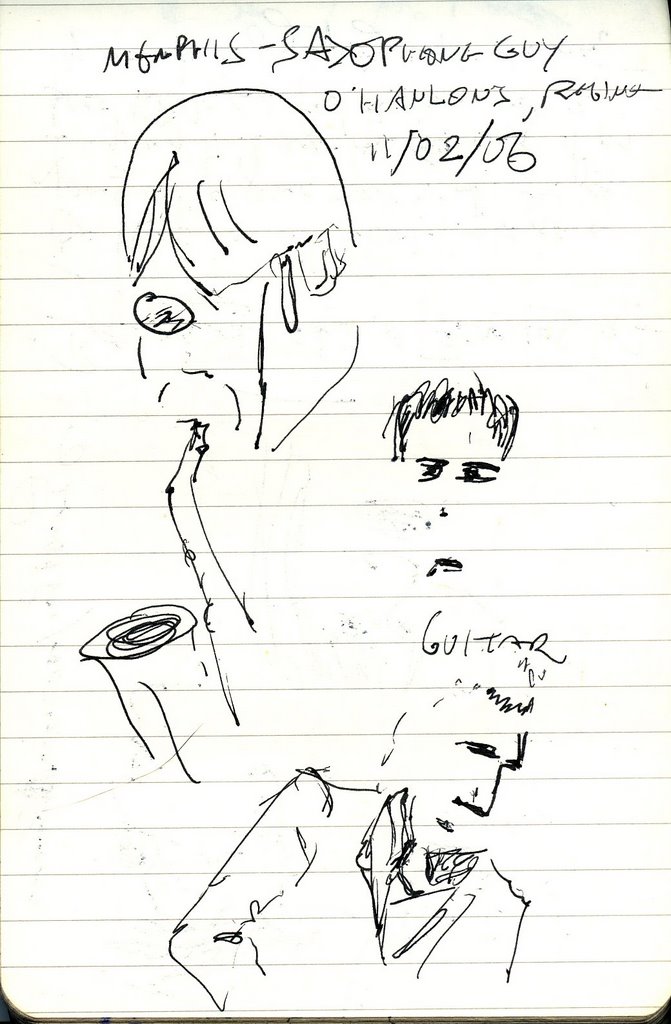 MEMPHIS - SAXOPHONE GUY
O'HANLONS, REGINA
11/02/06
GUITAR